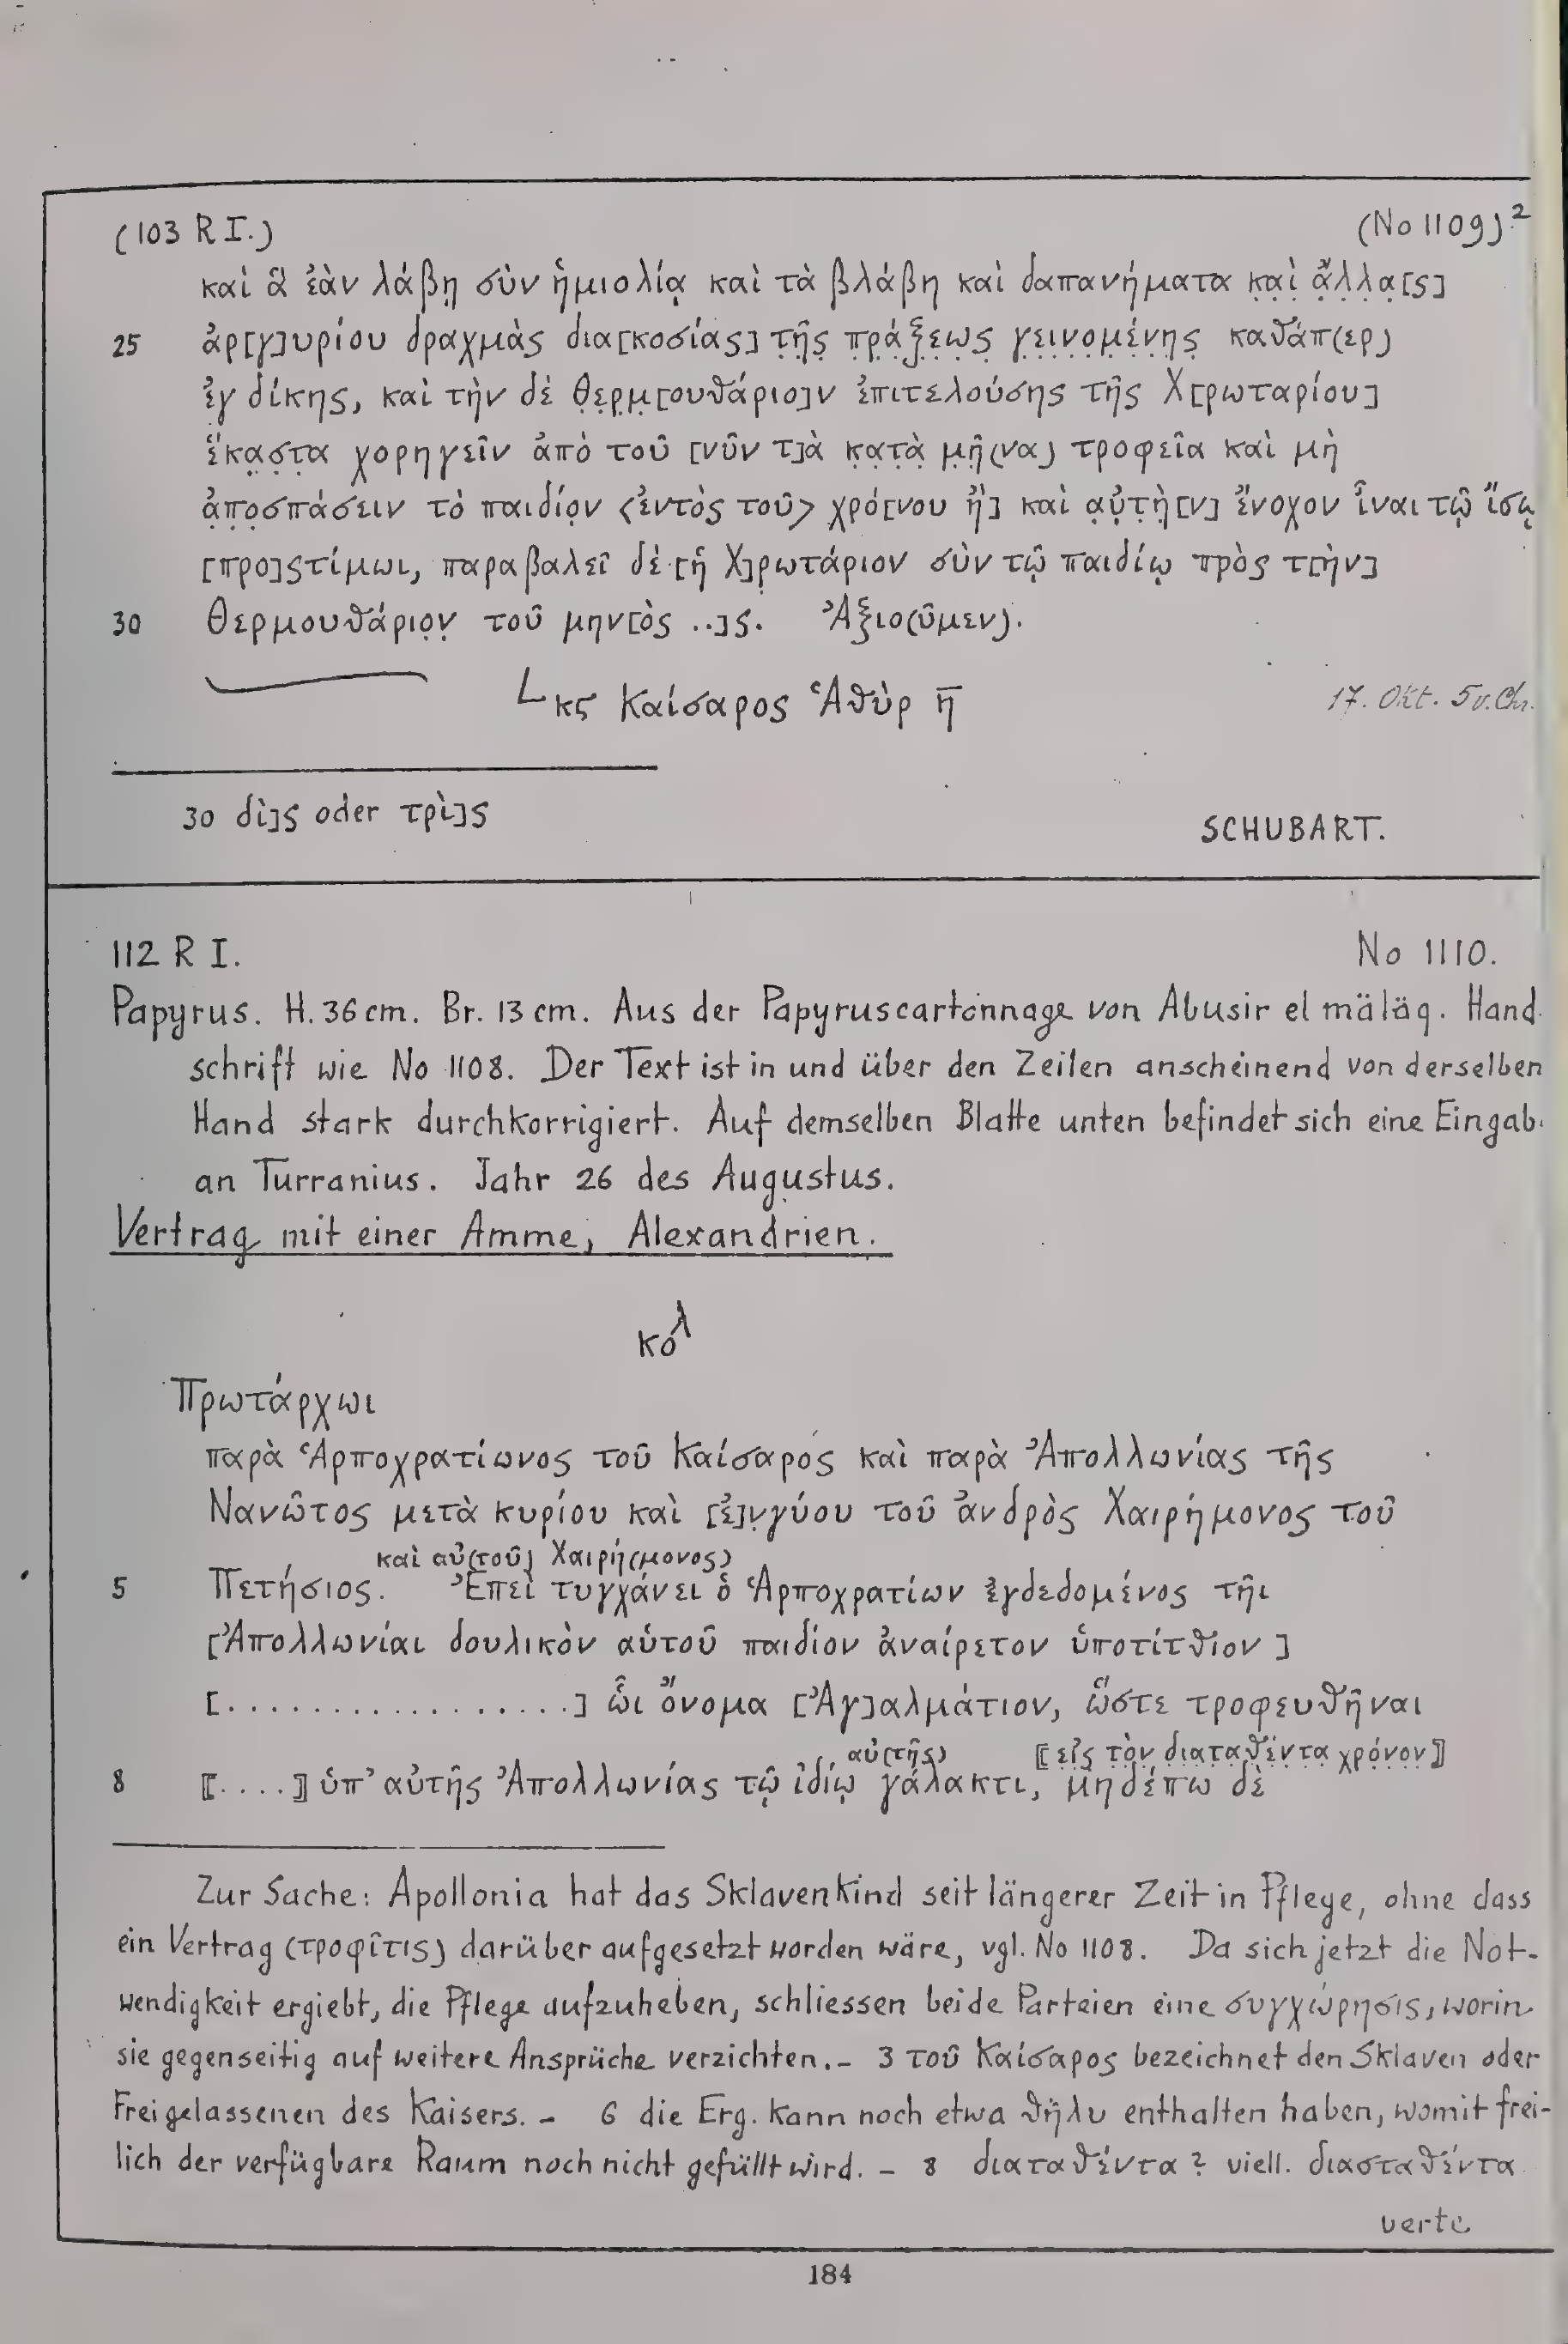 (103 R I.) (No 1109)²
καὶ ἃ ἐὰν λάβῃ σὺν ἡμιολίᾳ καὶ τὰ βλάβη καὶ δαπανήματα κ̣α̣ὶ̣ ἄ̣λ̣λ̣α̣[ς]
25 ἀρ[γ]υρίου δραχμὰς δια[κοσίας] τ̣ῆ̣ς̣ π̣ρ̣ά̣ξ̣ε̣ω̣ς̣ γ̣ε̣ι̣ν̣ο̣μ̣έ̣ν̣η̣ς̣ καθάπ(ερ)
ἐγ δίκης, καὶ τὴν δὲ Θ̣ε̣ρ̣μ̣[ουθάριο]ν ἐπιτελούσης τῆς Χ[ρωταρίου]
ἕκ̣α̣σ̣τ̣α χορηγεῖν ἀπὸ τοῦ [νῦν τ]ὰ κ̣α̣τ̣ὰ̣ μ̣ῆ̣(να) τροφεῖα καὶ μὴ
ἀ̣π̣ο̣σπάσειν τὸ παιδίο̣ν <ἐντὸς τοῦ> χρό[νου ἢ] καὶ α̣ὐ̣τ̣ὴ̣[ν] ἔνοχον ἶναι τῷ ἴσῳ
[προ]στίμωι, παραβαλεῖ δὲ [ἡ Χ]ρωτάριον σὺν τῷ παιδίῳ πρὸς τ[ὴν]
30 Θερμουθάριο̣ν̣ τοῦ μην[ὸς ..]ς. Ἀξιο(ῦμεν).
L κς Καίσαρος Ἁθὺρ η̅ 17. Okt. 5 v. Chr.
30 δὶ]ς oder τρὶ]ς
SCHUBART.
112 R I. No 1110.
Papyrus. H. 36 cm. Br. 13 cm. Aus der Papyruscartonnage von Abusir el mäläq. Hand
schrift wie No 1108. Der Text ist in und über den Zeilen anscheinend von derselben
Hand stark durchkorrigiert. Auf demselben Blatte unten befindet sich eine Eingab
an Turranius. Jahr 26 des Augustus.
Vertrag mit einer Amme, Alexandrien.
κολ
Πρωτάρχωι
παρὰ Ἁρποχρατίωνος τοῦ Καίσαρος καὶ παρὰ Ἀπολλωνίας τῆς
Νανῶτος μετὰ κυρίου καὶ [ἐ]νγύου τοῦ ἀνδρὸς Χαιρήμονος τοῦ
καὶ αὐ(τοῦ) Χαιρή(μονος)
5 Πετήσιος. Ἐπεὶ τυγχάνει ὁ Ἁρποχρατίων ἐγδεδομένος τῆι
[Ἀπολλωνίαι δουλικὸν αὑτοῦ παιδίον ἀναίρετον ὑποτίτθιον ]
[.................] ὧι ὄνομα [Ἀγ]αλμάτιον, ὥστε τροφευθῆναι
αὐ(τῆς) ⟦ε̣ἰ̣ς̣ τ̣ὸ̣ν̣ δ̣ι̣α̣τ̣α̣θ̣έ̣ν̣τ̣α̣ χ̣ρ̣ό̣ν̣ο̣ν̣⟧
8 ⟦....⟧ ὑπ’ αὐτῆς Ἀπολλωνίας τῷ ἰδίῳ γάλακτι, μηδέπω δὲ
Zur Sache: Apollonia hat das Sklavenkind seit längerer Zeit in Pflege, ohne dass
ein Vertrag (τροφῖτις) darüber aufgesetzt worden wäre, vgl. No 1108. Da sich jetzt die Not-
wendigkeit ergiebt, die Pflege aufzuheben, schliessen beide Parteien eine συγχώρησις, worin
sie gegenseitig auf weitere Ansprüche verzichten. – 3 τοῦ Καίσαρος bezeichnet den Sklaven oder
Freigelassenen des Kaisers. – 6 die Erg. kann noch etwa θῆλυ enthalten haben, womit frei-
lich der verfügbare Raum noch nicht gefüllt wird. – 8 διαταθέντα? viell. διασταθέντα
verte
184